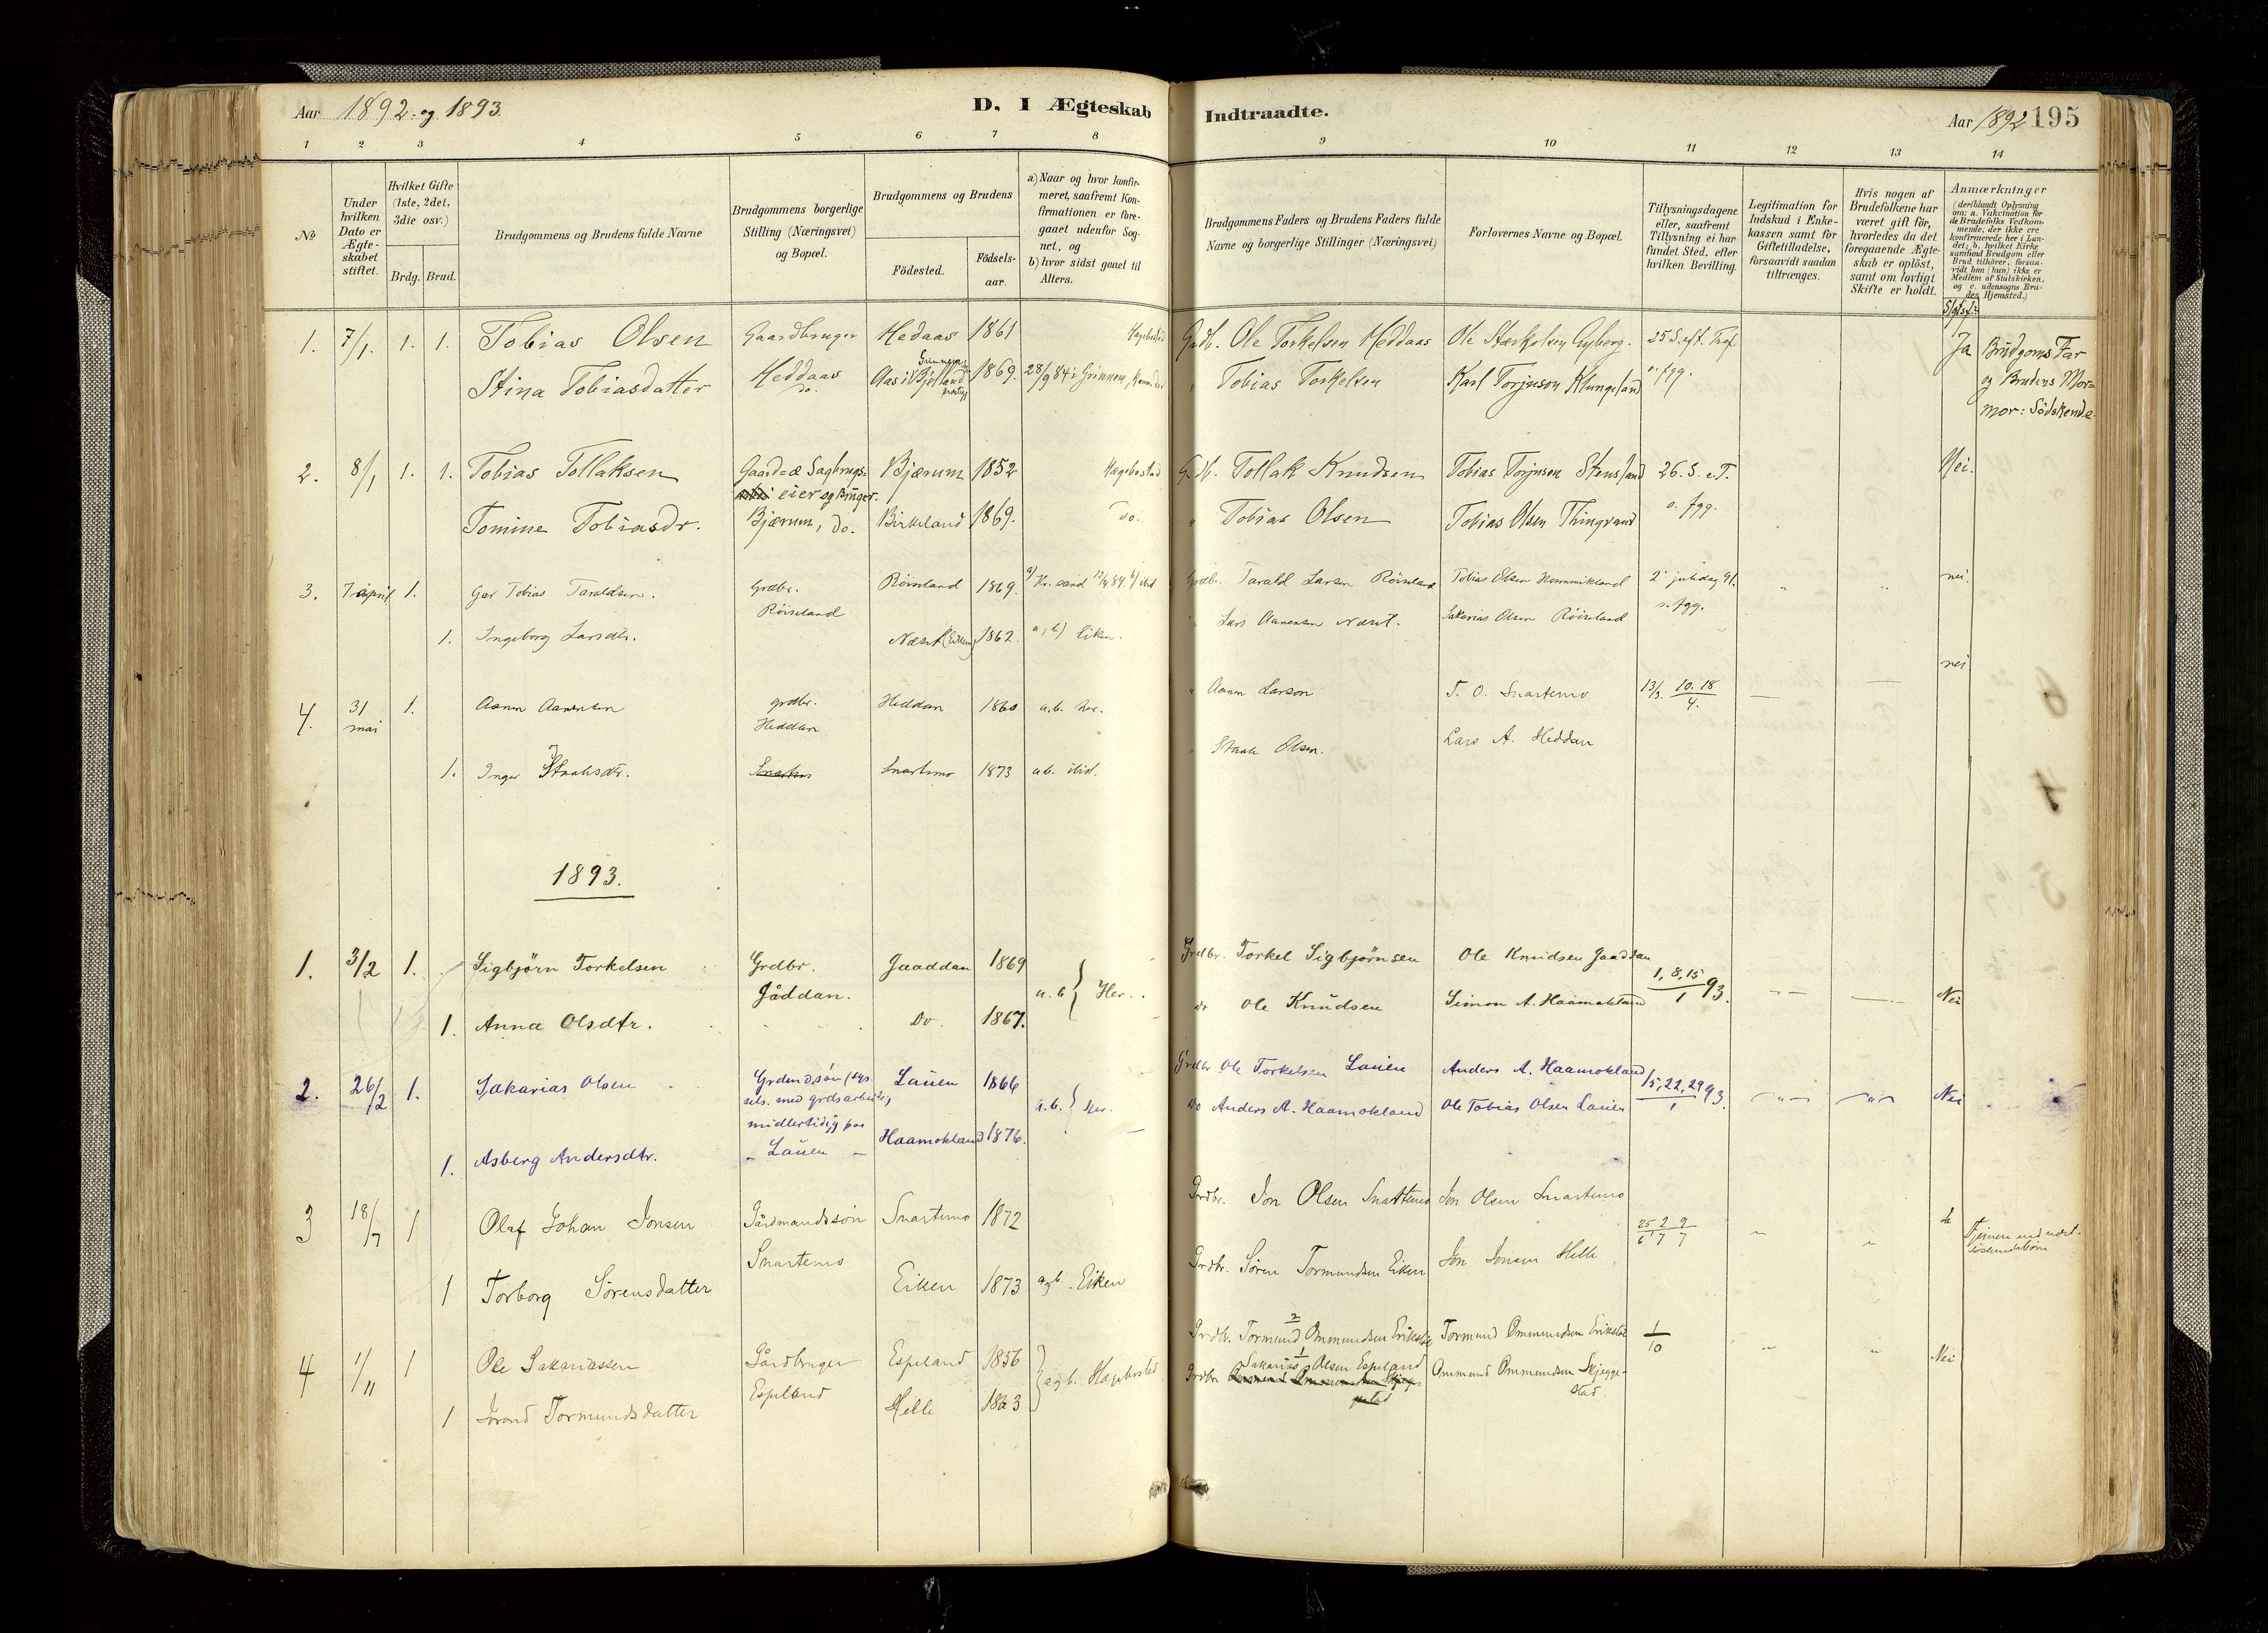 Aar 1892 og 1893.
D. I Ægteskab
Indtraadte.
Aar 1892 195
1 2 3 4 5 6 7 8
9 10 11 12 13 14
№
Under hvilken Dato er Ægteskabet stiftet.
Hvilket Gifte (1ste, 2det, 3die osv.)
Brdg. Brud.
Brudgommens og Brudens fulde Navne
Brudgommens borgerlige Stilling (Næringsvei) og Bopæl.
Brudgommens og Brudens
Födested.
Födselsaar.
a) Naar og hvor konfirmeret, saafremt Konfirmationen er foregaaet udenfor Sognet, og
b) hvor sidst gaaet til Alters.
Brudgommens Faders og Brudens Faders fulde Navne og borgerlige Stillinger (Næringsvei)
Forlovernes Navne og Bopæl.
Tillysningsdagene eller, saafremt Tillysning ei har fundet Sted, efter hvilken Bevilling.
Legitimation for Indskud i Enkekassen samt for Giftetilladelse, forsaavidt saadan tiltrænges.
Hvis nogen af Brudefolkene har været gift för, hvorledes da det foregaaende Ægteskab er oplöst, samt om lovligt Skifte er holdt.
Anmærkninger
(deriblandt Oplysning om: a. Vakcination for de Brudefolks Vedkommende, der ikke ere konfirmerede her i Landet; b. hvilket Kirkesamfund Brudgom eller Brud tilhörer, forsaavidt han (hun) ikke er Medlem af Statskirken, og c. udensogns Brudes Hjemsted.)
1. 7/1. 1. 1. Tobias Olsen Gaardbruger Hedaas 1861 Hægebostad Gadb. Ole Torkelsen Heddaas Ole Stærkolsen Gyberg. 25 S. eft. Tref. Ja Brudgoms Far
Stina Tobiasdatter Heddaas do. Aas i Bjelland 1869. 28/9 84 i Grinnem, " Tobias Torkelsen Karl Torjuson Klungeland o. fgg. og Brudens Mor=
mor: Södskende
2. 8/1 1. 1. Tobias Tollaksen Gaard= & Sagbrugs= eier og Bruger. Bjærum 1852 Hægebostad Gdb. Tollak Knudsen Tobias Torjusen Stensland 26. S. e. T. Nei.
Tomine Tobiasdr. Bjærum, do. Birkeland 1869. Do. " Tobias Olsen Tobias Olsen Thingvand o. fgg.
3. 7 april 1. Tobias Taraldsen. Grdbr. Röiseland Röiseland 1869. a) Kr. sand 84 b) ibid Grdbr. Tarald Larsen Röiseland Tobias Olsen 2' juledag 91. " " nei.
1. Ingeborg Larsdtr. (Eiken) 1862. a, b) Eiken. " Lars Aanensen Sakarias Olsen Röiseland o. fgg.
4. 31 mai 1. Aanen Aanensen grdbr. Heddan Heddan 1860 a.b. her. " Aanen Larson T. O. Snartemo 13/3. 10. 18/4. — — nei
1. Inger Staalesdtr. Snartemo 1873 a.b. ibid. " Staale Olsen. Lars A. Heddan
1893.
1. 3/2 1. Sigbjörn Torkelsen Grdbr. Jåddan. Jaaddan 1869 a. b } Her. Grdbr. Torkel Sigbjörnsen Ole Knudsen Jaaddan 1, 8, 15/1 93. — — Nei
1. Anna Olsdtr. Do. 1867. do Ole Knudsen Simon A. Haamokland
2. 26/2 1. Sakarias Olsen Grdmdsön (sys= sels. med grdsarbeide, midlertidig paa Lauen Lauen 1866 a.b. } her. Grdbr Ole Torkelsen Lauen Anders A. Haamokland 15, 22, 29/1 93. — " — — " — Nei
1. Asberg Andersdtr. Haamokland 1876. Do Anders A. Haamokland Ole Tobias Olsen Lauen
3 18/7 1 Olaf Johan Jonsen Gårdmandssön Snartemo Snartemo 1872 Grdbr. Jon Olsen Snartemo Jon Olsen Snartemo 25/6 2/7 9/7 " "
1 Torborg Sörensdatter Eiken 1873 a g b. Eiken Grdbr. Sören Tormundsen Eiken Jon Jonsen Helle
4 1/11 1 Ole Sakariassen Gårdbruger Espeland Espeland 1856 } a g b. Hægebostad Grdbr. Tormund Ommundsen Erikstad Tormund Ommundsen Erikstad 1/10 " " Nei
1 Jorand Tormundsdatter Helle 1863 Grdbr. Sakarias Olsen Espeland Ommund Ommundsen Skjeggestad